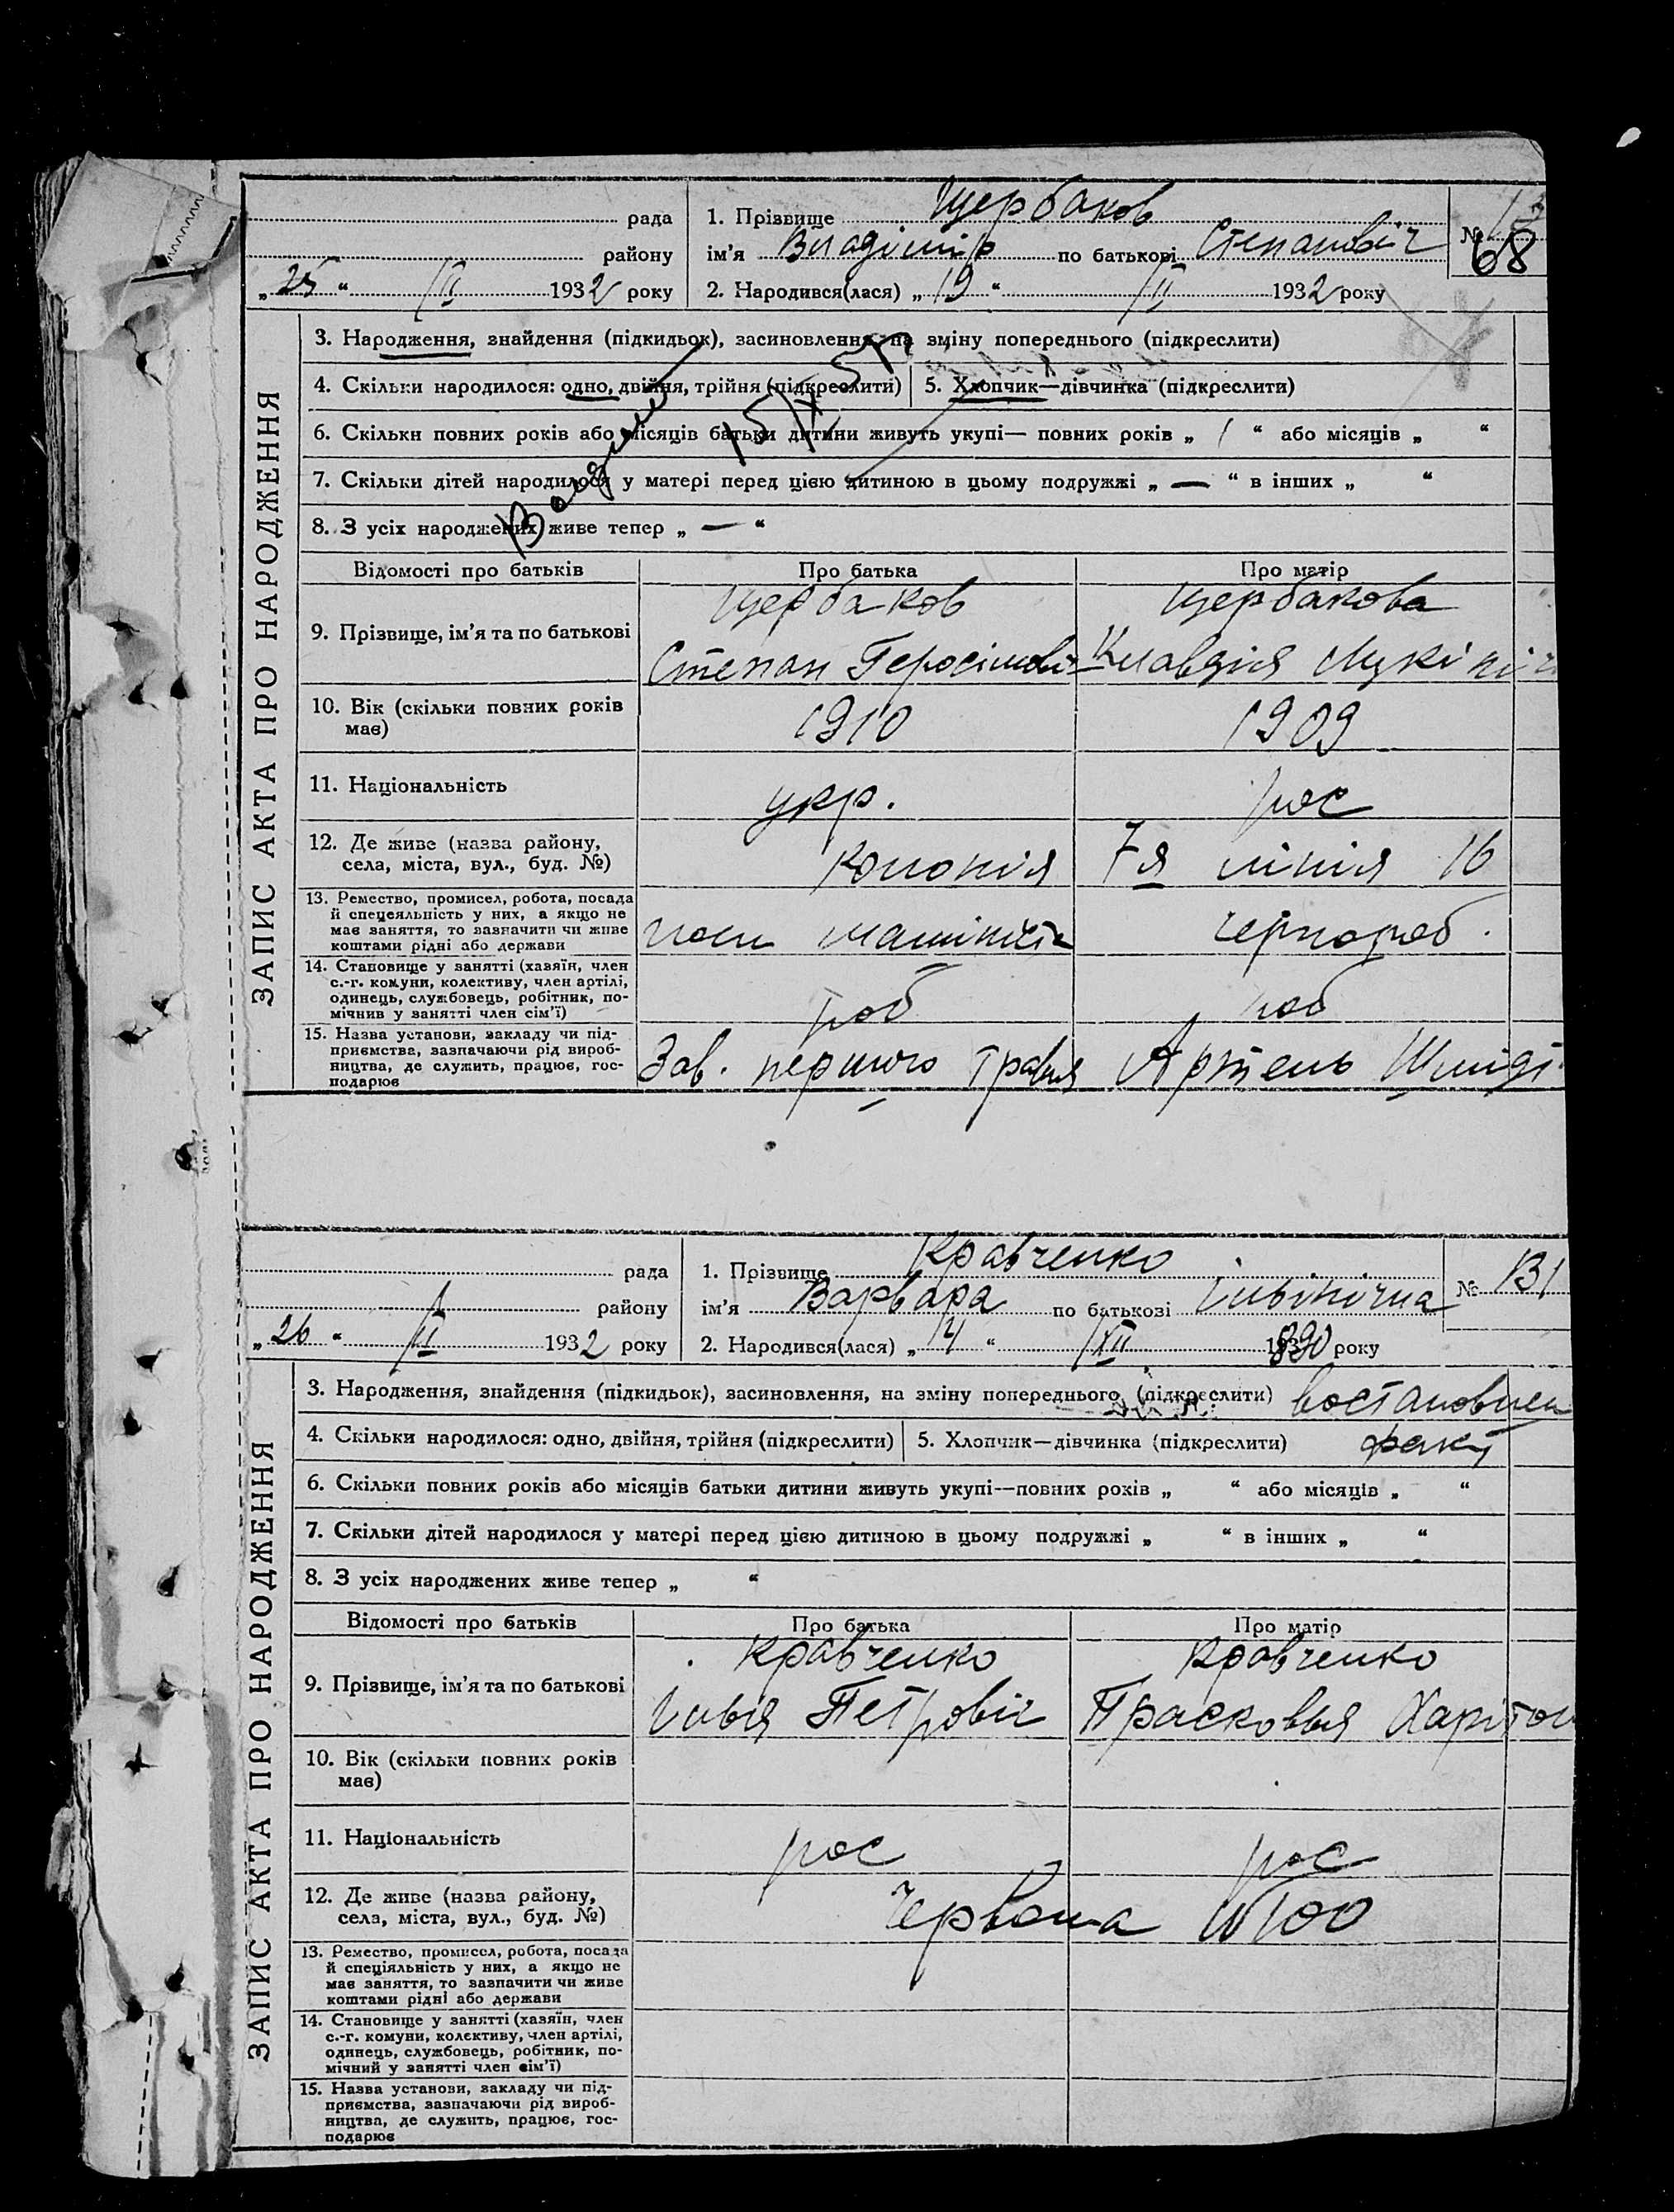 рада 1. Прізвище Щербаков
району ім’я Владімір по батькові Степановіч № 68
„25“ II 1932 року 2. Народився(лася) „19“ II 1932 року
ЗАПИС АКТА ПРО НАРОДЖЕННЯ
3. Народження, знайдення (підкидьок), засиновлення, на зміну попереднього (підкреслити)
4. Скільки народилося: одно, двійня, трійня (підкреслити) 5. Хлопчик—дівчинка (підкреслити)
6. Скільки повних років або місяців батьки дитини живуть укупі— повних років „ 1 “ або місяців „ “
7. Скільки дітей народилося у матері перед цією дитиною в цьому подружжі „ — “ в інших „ “
8. З усіх народжених живе тепер „ — “
Відомості про батьків Про батька Про матір
Щербаков Щербакова
9. Прізвище, ім’я та по батькові
Степан Геросімові Клавдія
10. Вік (скільки повних років
має) 1910 1909
11. Національність укр. рос
12. Де живе (назва району,
села, міста, вул., буд. №) Колонія 7я лінія 16
13. Ремество, промисел, робота, посада
й спецеяльність у них, а якщо не
має заняття, то зазначити чи живе
коштами рідні або держави машиніста чернороб.
14. Становище у занятті (хазяїн, член
с.-г. комуни, колективу, член артілі,
одинець, службовець, робітник, по-
мічнив у занятті член сім’ї) роб роб
15. Назва установи, закладу чи під-
приємства, зазначаючи рід вироб-
ництва, де служить, працює, гос-
подарює Зав. першого Травня Артель Шмідт
рада 1. Прізвище Кравченко
району ім’я Варвара по батькові Ільінічна № В1
„26“ II 1932 року 2. Народився(лася) „4“ XII 1890 року
ЗАПИС АКТА ПРО НАРОДЖЕННЯ
3. Народження, знайдення (підкидьок), засиновлення, на зміну попереднього (підкреслити) востановлен
4. Скільки народилося: одно, двійня, трійня (підкреслити) 5. Хлопчик—дівчинка (підкреслити)
6. Скільки повних років або місяців батьки дитини живуть укупі—повних років „ “ або місяців „ “
7. Скільки дітей народилося у матері перед цією дитиною в цьому подружжі „ “ в інших „ “
8. З усіх народжених живе тепер „ “
Відомості про батьків Про батька Про матір
Кравченко Кравченко
9. Прізвище, ім’я та по батькові
Ілья Петровіч Прасковья Харітон
10. Вік (скільки повних років
має)
11. Національність рос рос
12. Де живе (назва району,
села, міста, вул., буд. №) Червона №100
13. Ремество, промисел, робота, посада
й спеціяльність у них, а якщо не
має заняття, то зазначити чи живе
коштами рідні або держави
14. Становище у занятті (хазяїн, член
с.-г. комуни, колективу, член артілі,
одинець, службовець, робітник, по-
мічний у занятті член сім’ї)
15. Назва установи, закладу чи під-
приємства, зазначаючи рід вироб-
ництва, де служить, працює, гос-
подарює